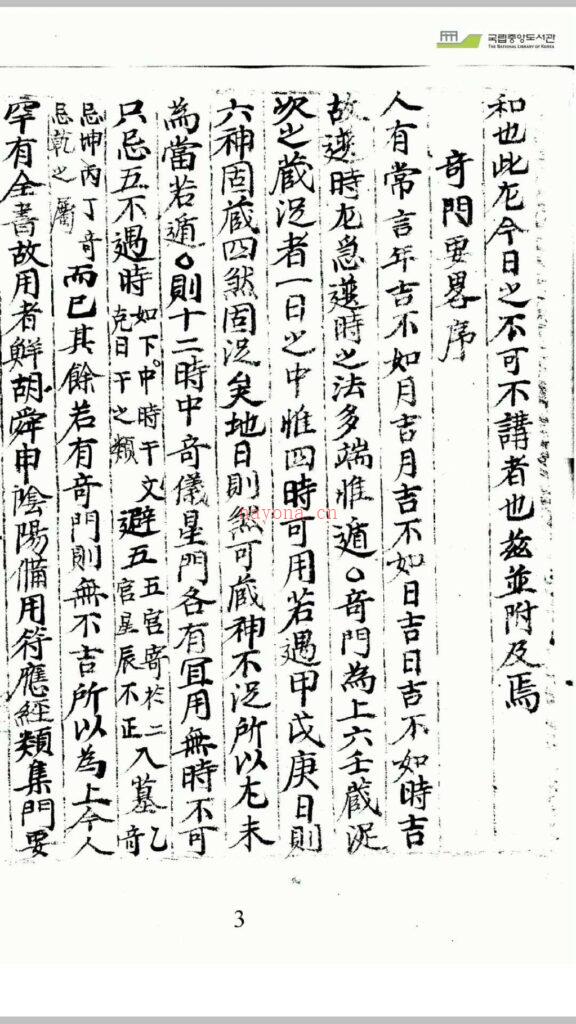 국립중앙도서관
THE NATIONAL LIBRARY OF KOREA
和也此尤今日之不可不講者也茲並附及焉
奇門要畧序
人有常言年吉不如月吉月吉不如日吉日吉不如時吉
故選時尤急選時之法多端惟遁〇奇門為上六壬藏没
次之藏没者一日之中惟四時可用若遇甲戊庚日則
六神固藏四煞固没矣地日則煞可藏神不没所以尤未
為當若遁〇則十二時中奇儀星門各有宜用無時不可
只忌五不遇時如下中時干文克日干之類避五五宮寄於二宮星辰不正入墓乙奇
忌坤丙丁奇忌乾之屬而已其餘若有奇門則無不吉所以為上今人
罕有全書故用者鮮胡舜申陰陽備用符應經類集門要
nayona.cn
3